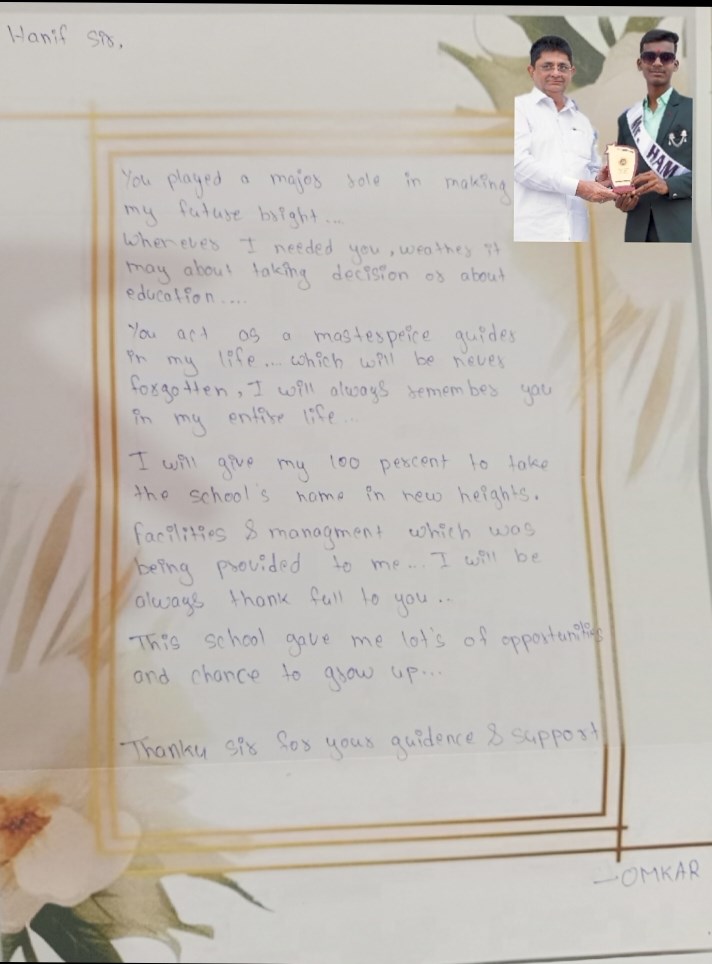 Hanif Sir,
Mr. HAM
You played a major role in making
my future bright...
Whenever I needed you, weather it
may about taking decision or about
education....
You act as a masterpeice guider
in my life.... which will be never
forgotten, I will always remember you
in my entire life...
I will give my 100 percent to take
the school's name in new heights.
facilities & managment which was
being provided to me... I will be
always thank full to you..
This school gave me lot's of opportunities
and chance to grow up...
Thanku sir for your guidence & support
—OMKAR